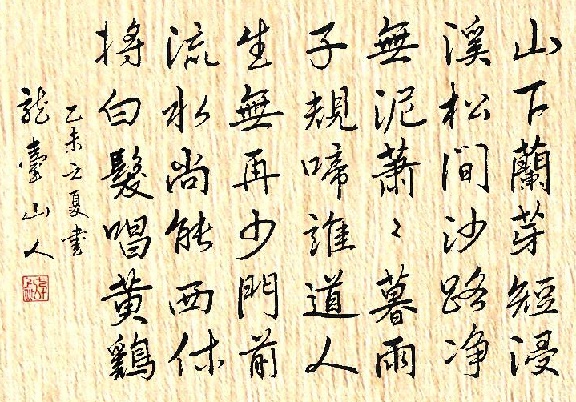 山下蘭芽短浸
溪松間沙路净
無泥蕭〻暮雨
子規啼誰道人
生無再少門前
流水尚能西休
將白髮唱黄鷄
乙未立夏書
龍臺山人